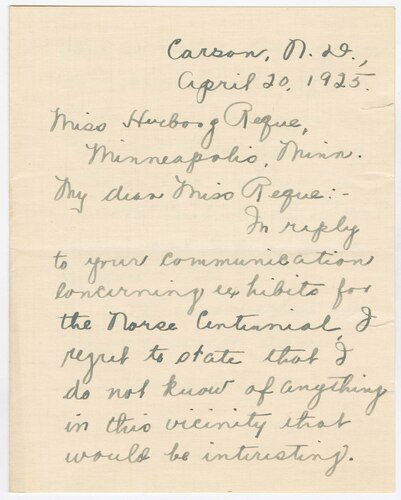 Carson, N. D.,
April 20, 1925.
Miss Herborg Reque,
Minneapolis, Minn.
My dear Miss Reque:-
In reply
to your communication
concerning exhibits for
the Norse Centennial, I
regret to state that I
do not know of anything
in this vicinity that
would be interesting.